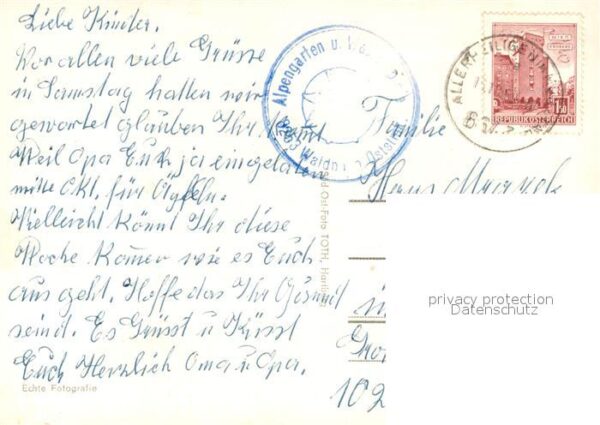 Liebe Kinder.
Vor allen viele Grüsse
in Samstag hatten wir
gewartet glauben Ihr kommt
Weil Opa Euch ja eingeladen
mitte Okt. für Äpfeln.
Vielleicht könnt Ihr diese
Woche komen wie es Euch
aus geht. Hoffe das Ihr Gesund
seind. Es Grüsst u Küsst
Euch Herzlich Oma u Opa.
Echte Fotografie
Alpengarten u.
REPUBLIK ÖSTERREICH
Familie
Hans
Foto TOTH,
privacy protection
Datenschutz
102